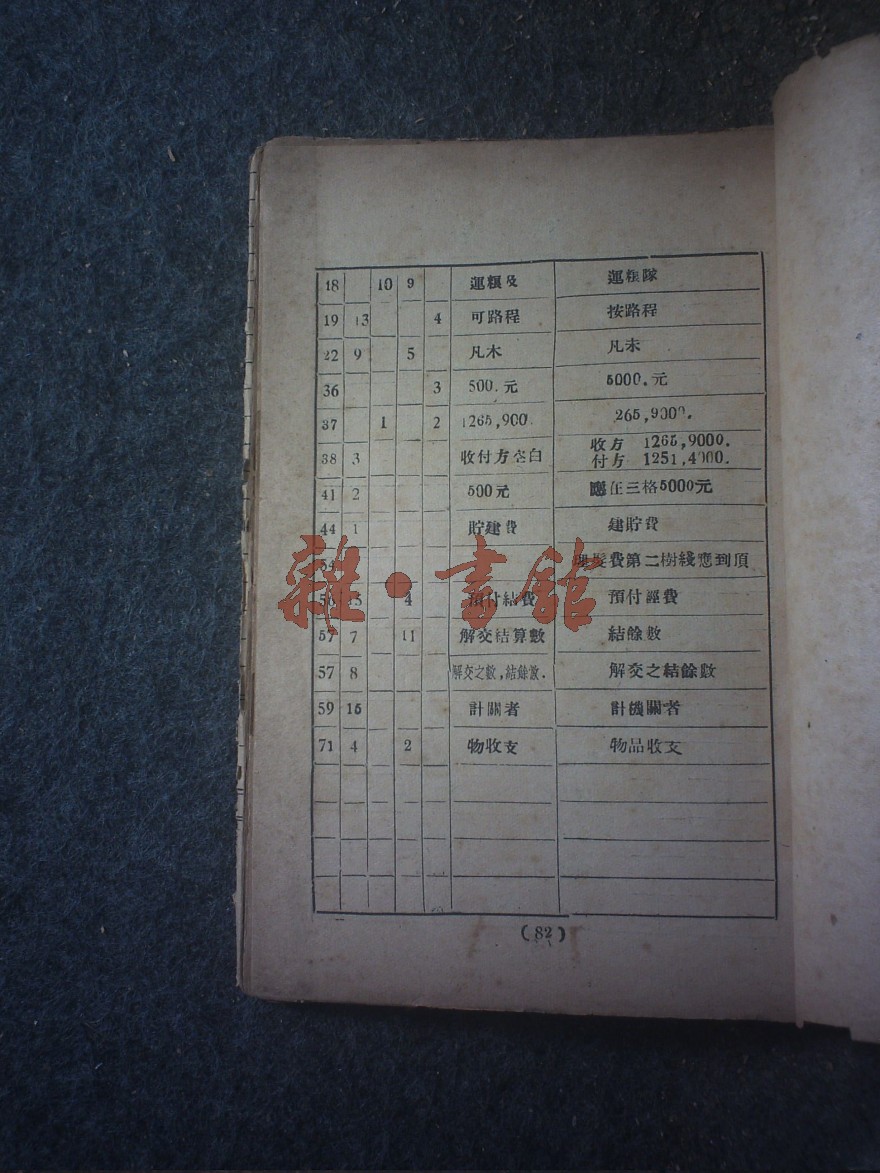 18 10 9 運粮及 運粮隊
19 13 4 可路程 按路程
22 9 5 凡木 凡未
36 3 500.元 5000.元
37 1 2 1265,900. 265,9000.
38 3 收付方空白 收方 1265,9000.
付方 1251,4000.
41 2 500元 應在三格5000元
44 1 貯建費 建貯費
54 理髮費第二樹綫應到頂
56 15 4 預付結費 預付經費
57 7 11 解交結算數 結餘數
57 8 解交之數,結餘數. 解交之結餘數
59 16 計關者 計機關者
71 4 2 物收支 物品收支
雜·書館
(82)